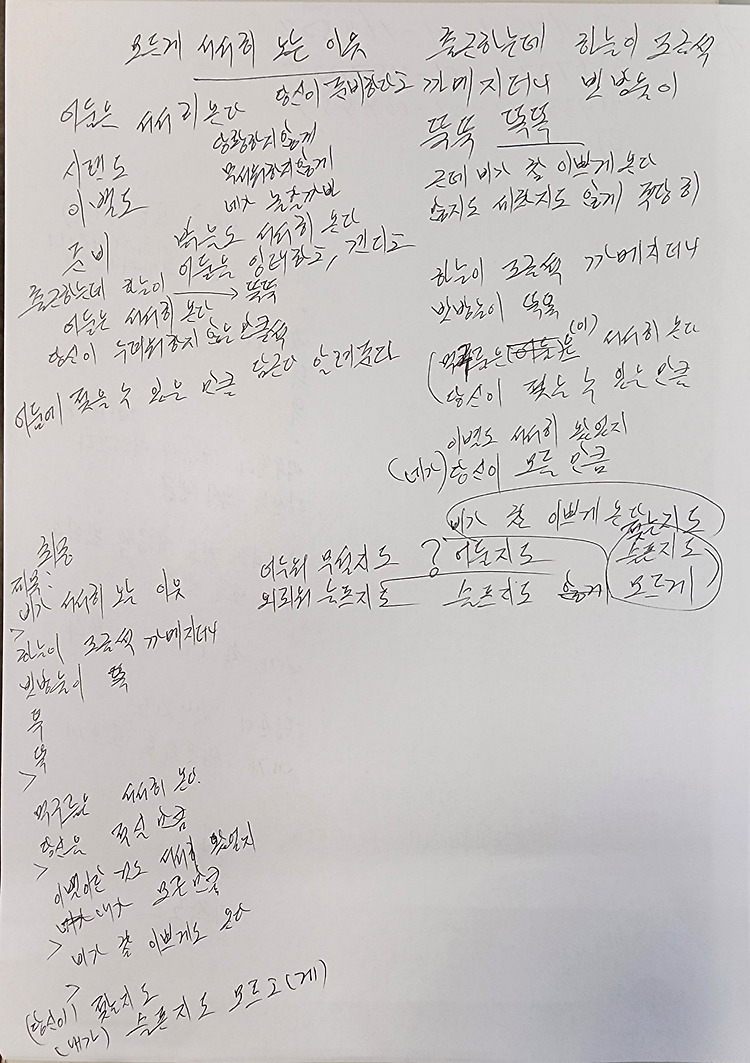 모르게 서서히 오는 이웃
당신이 준비하라고
어둠은 서서히 온다
당황하지 않게
시련도
무서워하지 않게
이별도
네가 놀랄까봐
준비
밝음도 서서히 온다
어둠을 인내하고, 견디고
출근하는데 하늘이 → 뚝뚝
어둠은 서서히 온다
당신이 두려워하지 않는 만큼씩
어둠에 젖을 수 있을 만큼 담근다 알려준다
출근하는데 하늘이 조금씩
까메지더니 빗방울이
뚝뚝 뚝뚝
근데 비가 참 이쁘게 온다
세찬지도 않게 적당히
하늘이 조금씩 까메지더니
빗방울이 뚝뚝
(먹구름은 (이) 서서히 온다
당신이 젖는 수 있을 만큼
이별도 서서히 왔었지
(네가) 당신이 모를 만큼
비가 참 이쁘게 온다 젖는지도
어두워 무섭지도 ? 어둡지도 슬픈지도
외로워 슬프지도 슬프지도 않게 모르게
최종
제목:
비가 서서히 오는 이웃
>
하늘이 조금씩 까메지더니
빗방울이 뚝
뚝
뚝
>
먹구름은 서서히 온다.
당신은 적실 만큼
>
이별이란 것도 서서히 왔었지
내가 모른 만큼
> 비가 참 이쁘게도 온다
>
(당신이) 젖는지도
(내가) 슬픈지도 모르고(게)